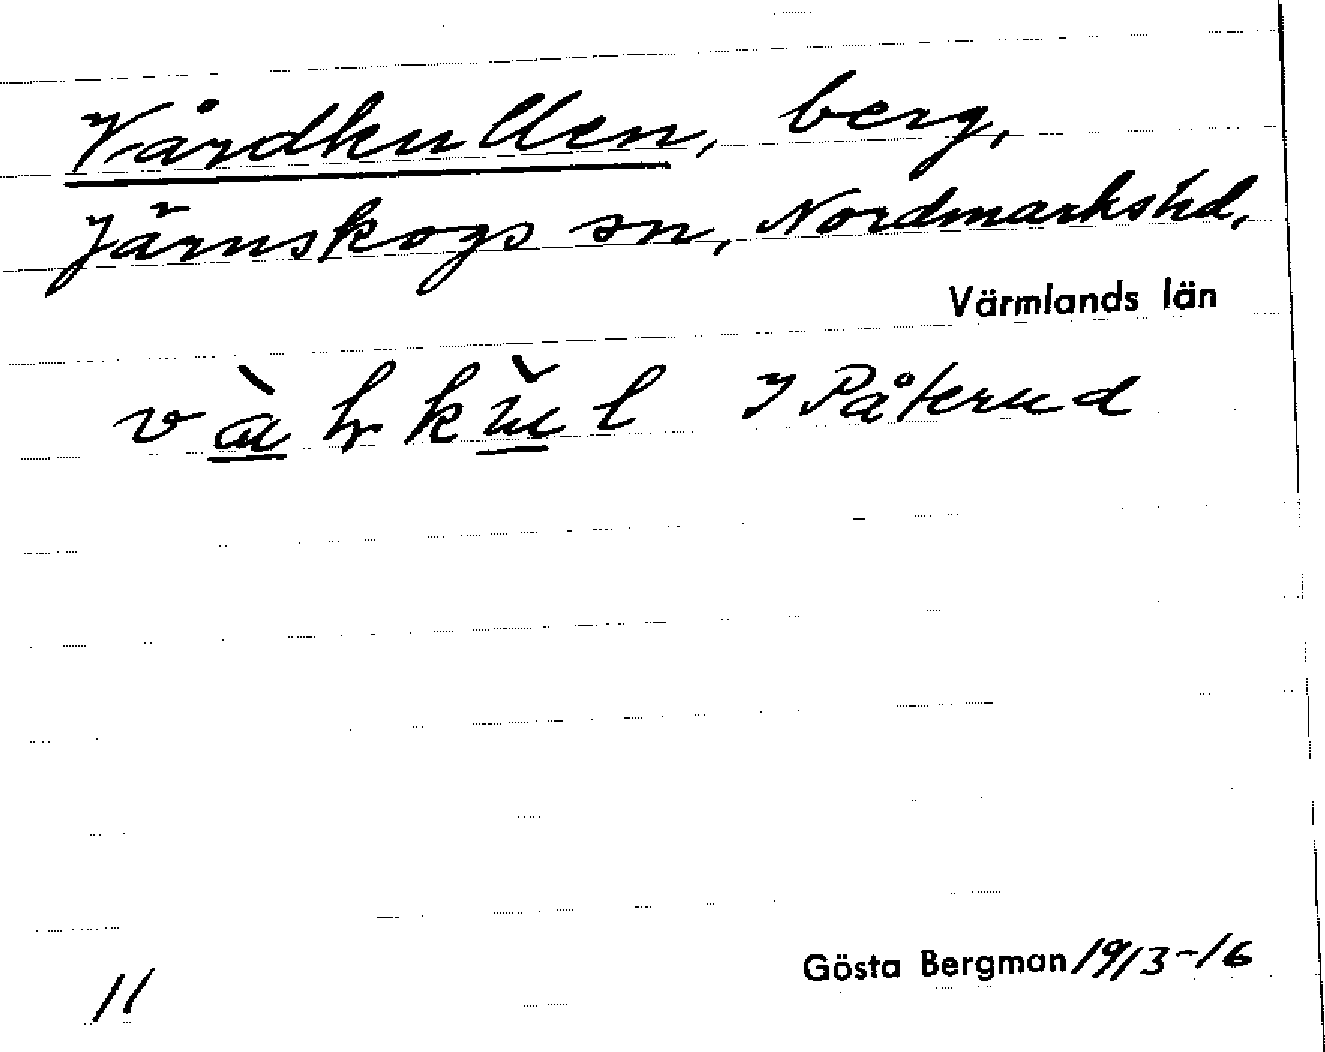 Vårdkullen, berg,
Järnskogs sn, Nordmarks hd,
Värmlands län
I Påterud
Gösta Bergman 1913-16
11